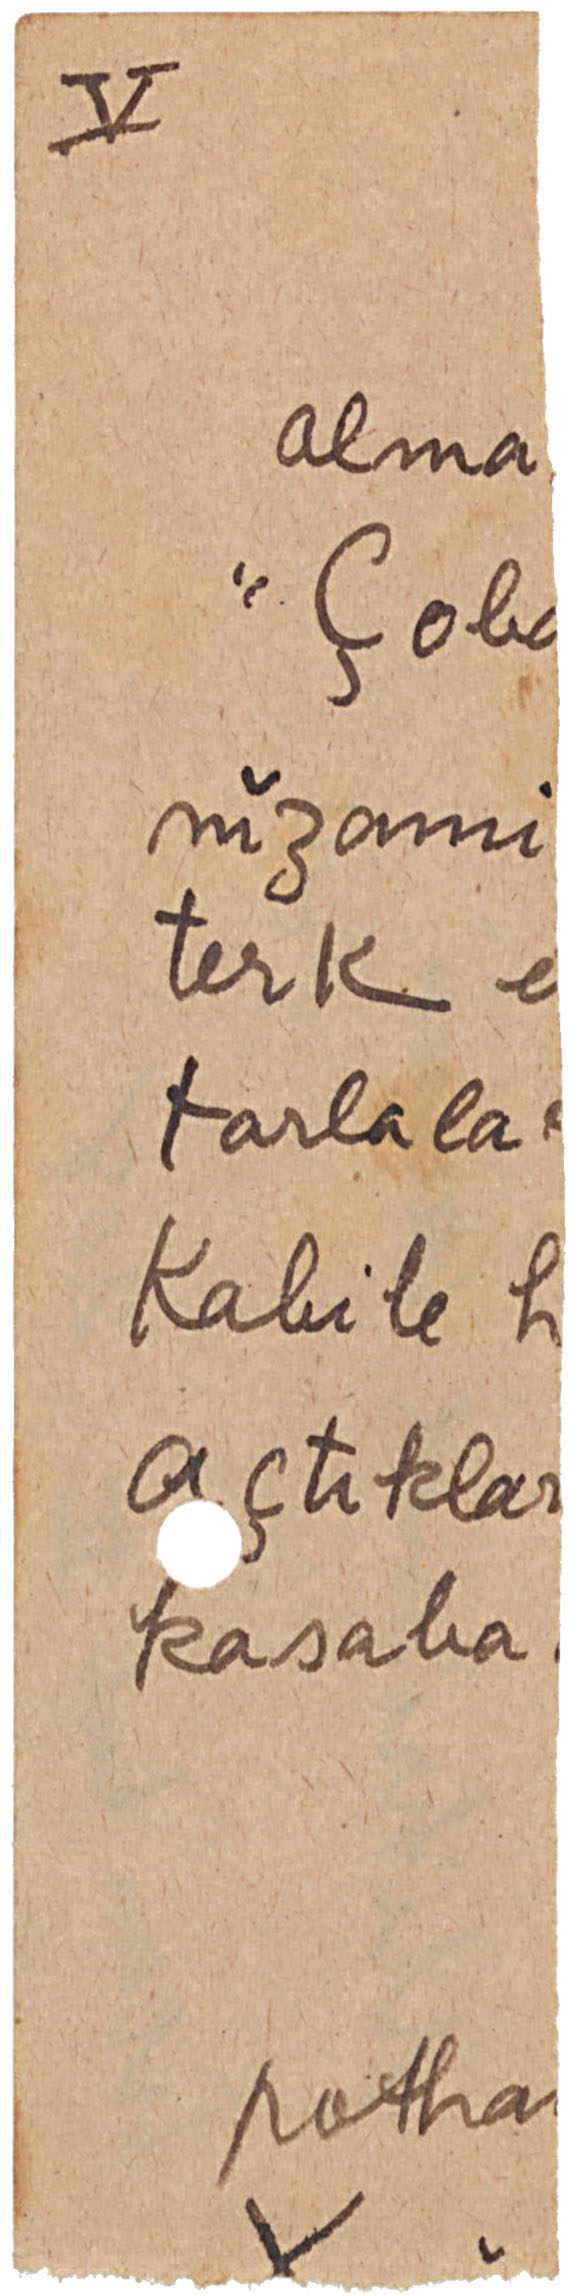 V
alma
"Çoba
nizami
terk e
tarlala
Kabile h
açtıklar
kasaba